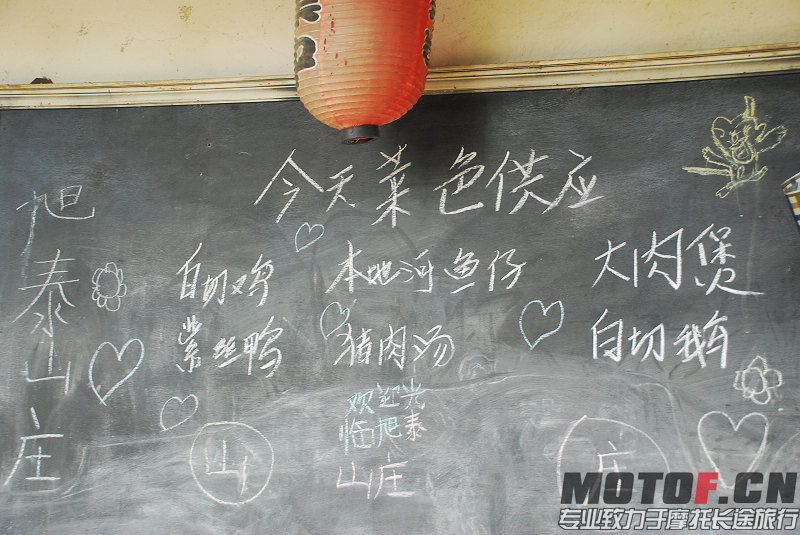 今天菜色供应
旭泰山庄
白切鸡 本地河鱼仔 大肉煲
紫丝鸭 猪肉汤 白切鹅
欢迎光
临旭泰
山庄
山
庄
MOTOF.CN
专业致力于摩托长途旅行